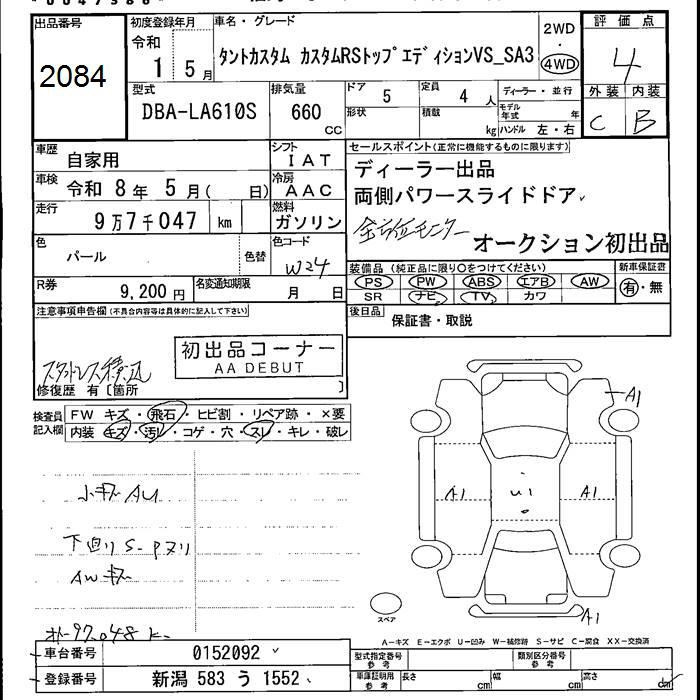 出品番号
2084
初度登録年月
令和
1 5月
車名・グレード
タントカスタム カスタムRSトップエディションVS_SA3
2WD
・
4WD
評価点
4
外装 内装
C B
型式
DBA-LA610S
排気量
660
CC
ドア
5
形状
定員
4人
積載
kg
ディーラー・並行
モデル年式 年
ハンドル 左・右
車歴
自家用
シフト
IAT
車検
令和 8年 5月( 日)
冷房
AAC
走行
9万7千047 km
燃料
ガソリン
色
パール
色替
色コード
W24
R券
9,200円
名変通知期限
月 日
セールスポイント(正常に機能するものに限ります)
ディーラー出品
両側パワースライドドア
全方位モニター
オークション初出品
装備品(純正品に限り○をつけてください)
PS PW ABS エアB AW
SR ナビ TV カワ
新車保証書
有・無
後日品
保証書・取説
注意事項申告欄(不具合内容等は具体的に記入して下さい)
スタッドレス積込
初出品コーナー
AA DEBUT
修復歴 有〔箇所 〕
検査員記入欄
FW キズ・飛石・ヒビ割・リペア跡・×要
内装 キズ・汚レ・コゲ・穴・スレ・キレ・破レ
小キズAU
下回りS-Pヌリ
AWキズ
オト-97.048K-
A1
A1
U1
A1
A1
スペア
A-キズ E-エクボ U-凹み W-補修跡 S-サビ C-腐食 XX-交換済
車台番号
0152092
登録番号
新潟 583 う 1552
型式指定番号
参考
類別区分番号
参考
車庫証明用
参考
長さ cm
幅 cm
高さ cm